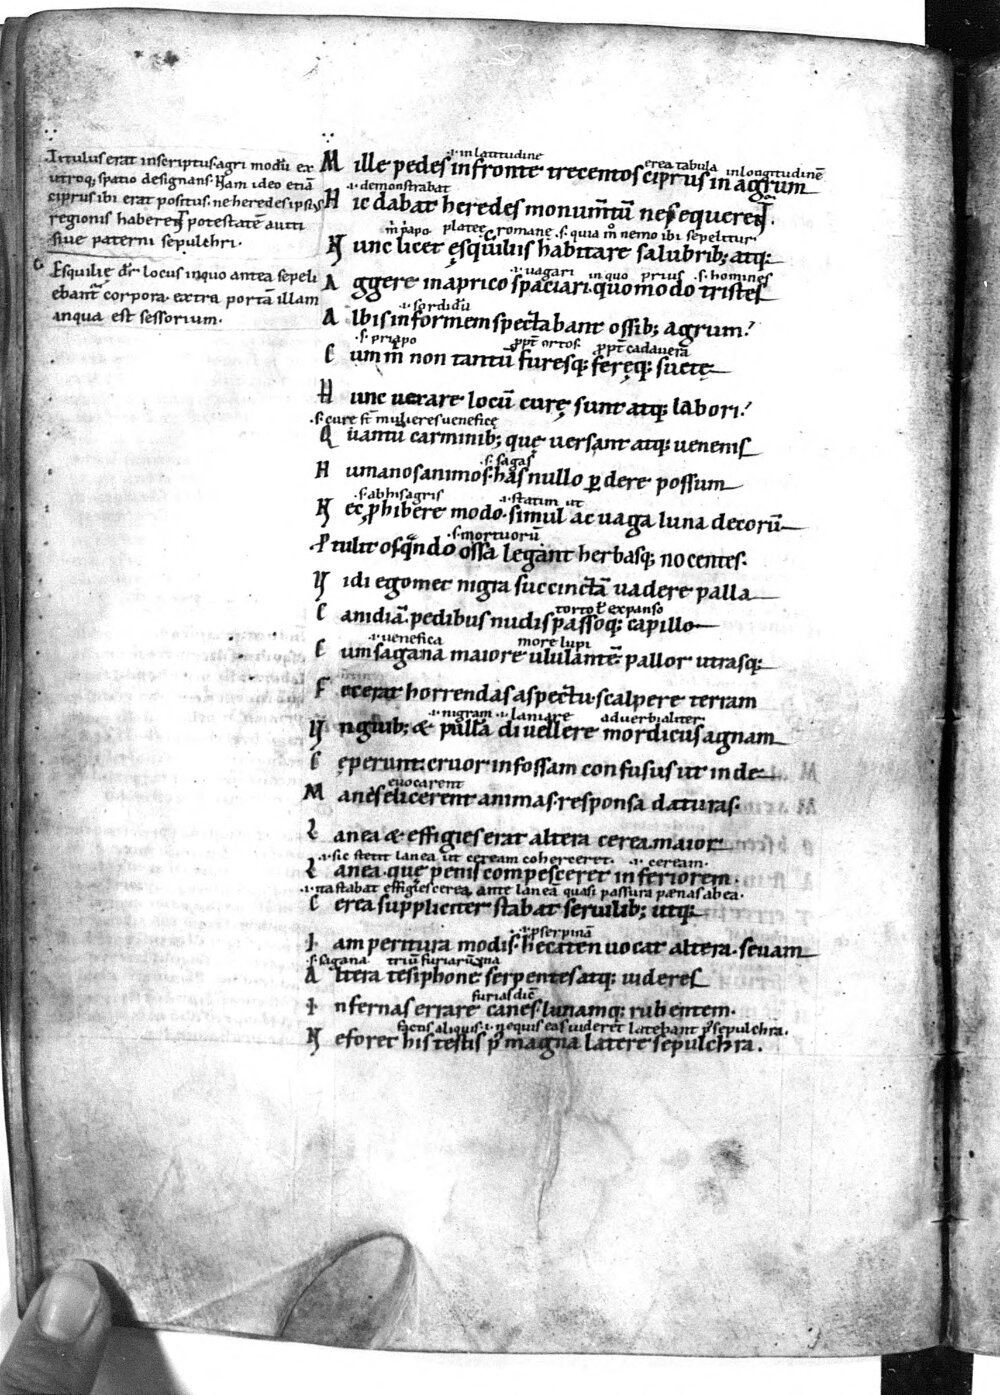 Titulus erat inscriptus agri modũ ex
utroq; spatio designans. Nam ideo etiã
ciprus ibi erat positus. ne heredes ipsius
regionis haberent potestatẽ auiti
siue paterni sepulchri.
Esquilię dr̃ locus in quo antea sepeli
ebant corpora. extra portã illam
in qua est sessorium.
.i. in latitudine
erea tabula in longitudinẽ
Mille pedes in fronte trecentos ciprus in agrum
.i. demonstrabat
Hic dabat heredes monumtũ ne seqverent̃
platee romane .s. quia m̊ nemo ibi sepelitur
Nunc licet ęsquiliis habitare salubrib; atq;
.i. uagari in quo prius .s. homines
Aggere in aprico spaciari. quo modo tristes
.i. sordidũ
Albis informem spectabant ossib; agrum.
.s. priapo ꝓpt̃ ortos. ꝓpt̃ cadauera
Cum m̃ non tantũ furesq; feręq; suetę
Hunc uexare locũ curę sunt atq; labori.
.s. cure st̃ mulieres uenefice
Quantũ carminib; quę uersant atq; uenenis
.s. sagas
Humanos animos. has nullo ꝑdere possum
.s. ab his agris .i. statim ut
Nec ꝓhibere modo. simul ac uaga luna decorũ
.s. mortuorũ
Ptulit os q̃ndo ossa legant herbasq; nocentes.
Vidi egomet nigra succinctã uadere palla
torto ł expanso
Canidiã. pedibus nudis passoq; capillo
.i. uenefica more lupi
Cum sagana maiore ululantẽ. pallor utrasq;
Fecerat horrendas aspectu. scalpere terram
.i. nigram .i. laniare aduerbialiter
Vngib; & pullã diuellere mordicus agnam
Cęperunt. cruor in fossam confusus ut inde
euocarent
Manes elicerent animas. responsa daturas.
Lanea & effigies erat altera cerea. maior
.i. sic stetit lanea ut ceream coherceret. .i. ceream.
Lanea. quę penis compesceret inferiorem.
.i. ita stabat effigies cerea ante laneã quasi passura pęnas ab ea.
Cerea suppliciter stabat seruilib; utq;
.i. ꝓserpinã
Iam peritura modis. hecaten uocat altera. sęuam
.s. sagana triũ furiarũ una
Altera tesiphone serpentes atq; uideres
furias dic̃
Infernas errare canes. lunamq; rubentem.
aliquis .i. ne quis eas uideret latebant p̃ sepulchra.
Ne foret his testis p̃ magna latere sepulchra.